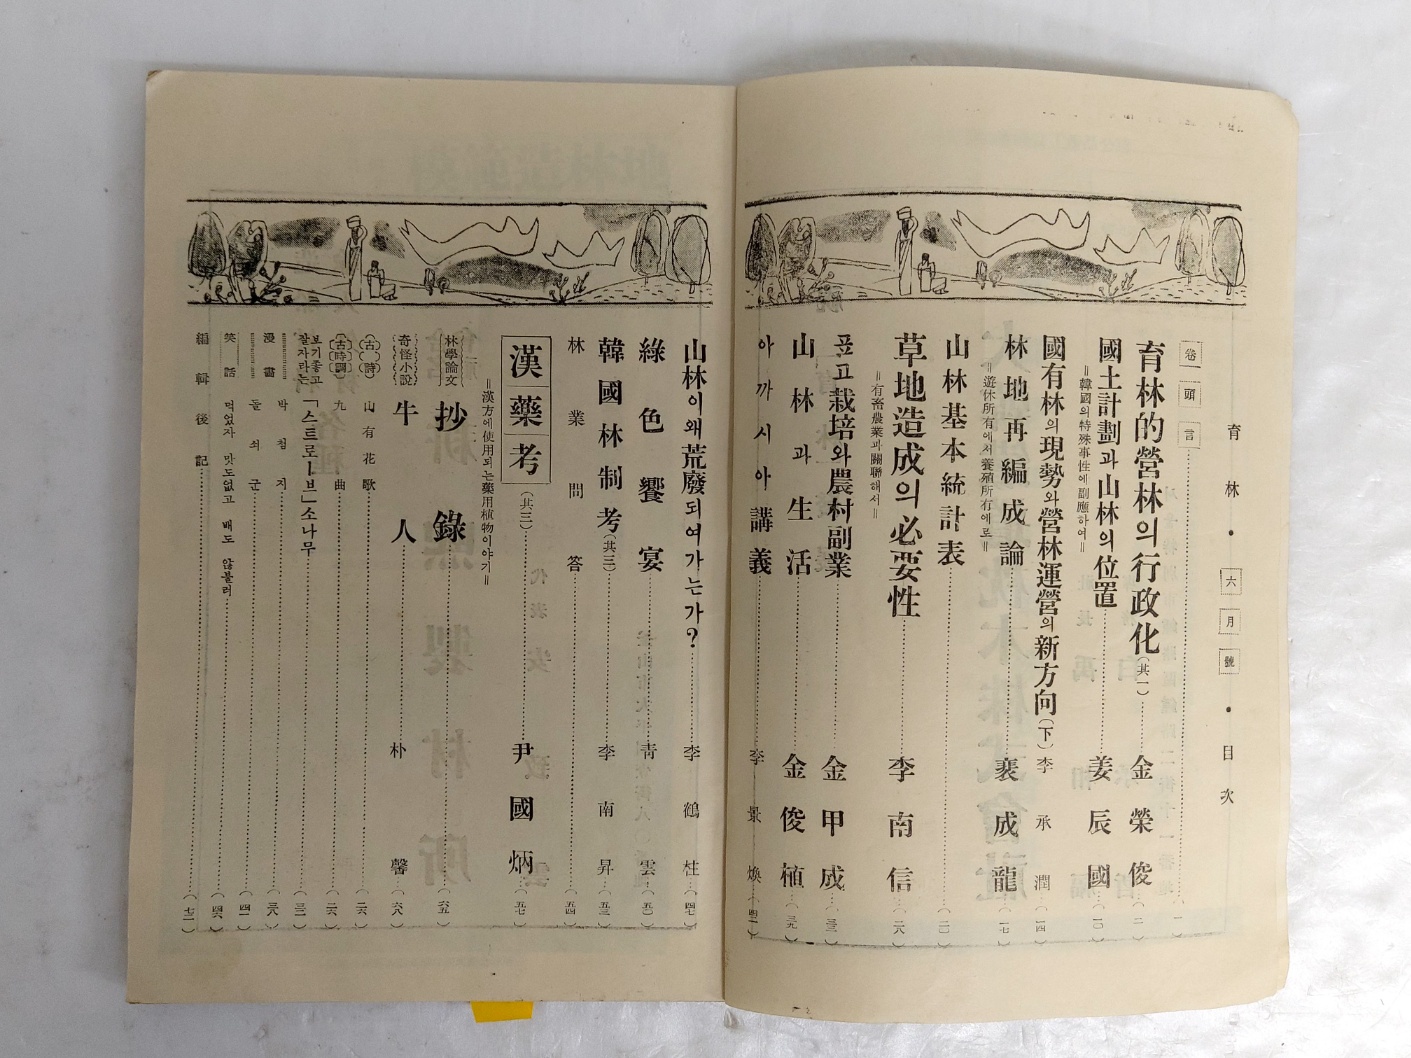 育林·六月號·目次
卷頭言 (一)
育林的營林의行政化 (其一) 金榮俊 (二)
國土計劃과山林의位置 姜辰國 (一〇)
=韓國의特殊事性에副應하여=
國有林의現勢와營林運營의新方向 (下) 李承潤 (一四)
林地再編成論 裵成龍 (一七)
=遊休所有에서養殖所有에로=
山林基本統計表
草地造成의必要性 李南信 (二八)
=有畜農業과關聯해서=
표고栽培와農村副業 金甲成
山林과生活 金俊植 (三九)
아까시아講義 李景煥
山林이왜荒廢되여가는가? 李鶴柱 (四七)
綠色饗宴 靑雲 (五〇)
韓國林制考 (其三) 李南昇 (五三)
林業問答 (五四)
漢藥考 (其三) 尹國炳 (五七)
=漢方에使用되는藥用植物이야기=
林學論文 抄錄 (六五)
奇怪小說 牛人 朴馨 (六八)
(古)(詩) 山有花歌 (二六)
(古時調) 九曲 (二六)
보기좋고 잘자라는 「스트로-브」소나무 (三二)
박첨지 (三八)
漫畵 돌쇠군 (四一)
笑話 먹었자 맛도없고 배도 않불러 (四六)
編輯後記 (七二)